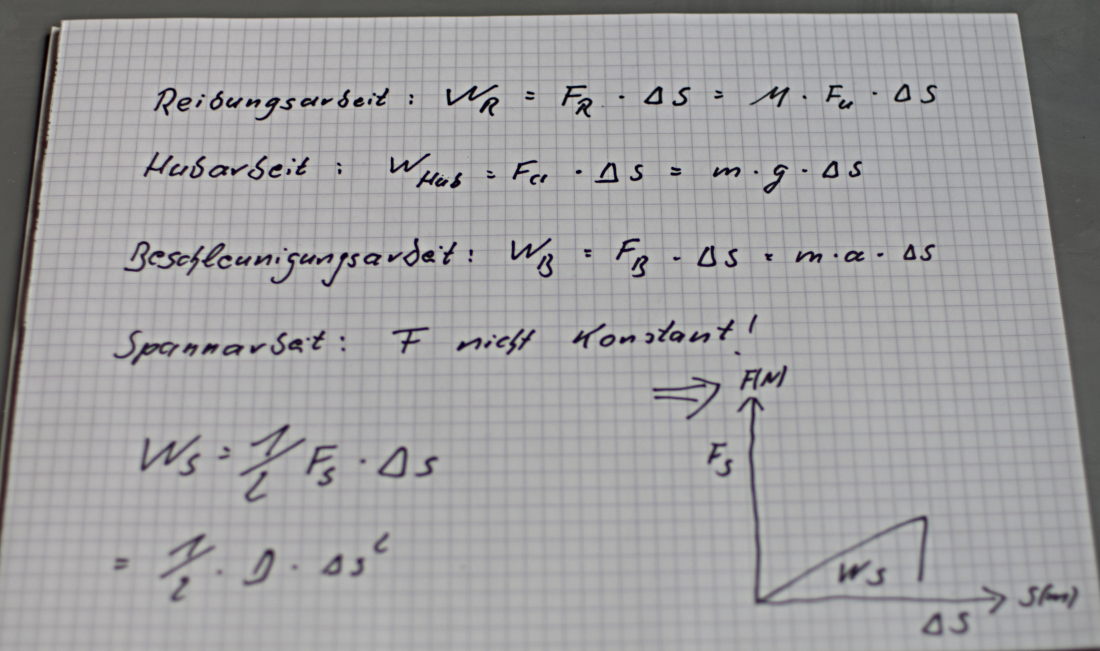 Reibungsarbeit : W_R = F_R · Δs = μ · F_N · Δs
Hubarbeit : W_Hub = F_G · Δs = m · g · Δs
Beschleunigungsarbeit : W_B = F_B · Δs = m · a · Δs
Spannarbeit : F nicht Konstant !
⇒ F(N)
W_s = 1/2 F_s · Δs
F_s
= 1/2 · D · Δs²
W_s
s(m)
Δs